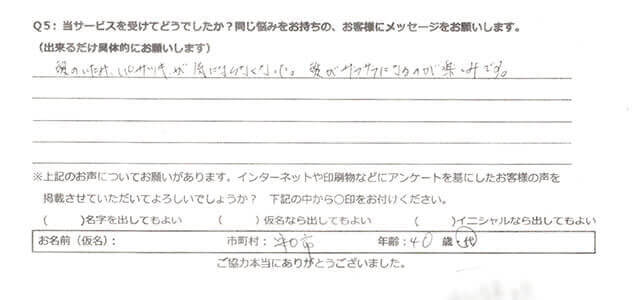 Q5：当サービスを受けてどうでしたか？同じ悩みをお持ちの、お客様にメッセージをお願いします。
（出来るだけ具体的にお願いします）
髪のいたみ、パサツキが気にならなくなった。髪がサラサラになるのが楽しみです。
※上記のお声についてお願いがあります。インターネットや印刷物などにアンケートを基にしたお客様の声を
掲載させていただいてよろしいでしょうか？　下記の中から〇印をお付けください。
（　　　）名字を出してもよい　　（　　　）仮名なら出してもよい　　（　　　）イニシャルなら出してもよい
お名前（仮名）：　　市町村：　市　　年齢：40　歳・代
ご協力本当にありがとうございました。